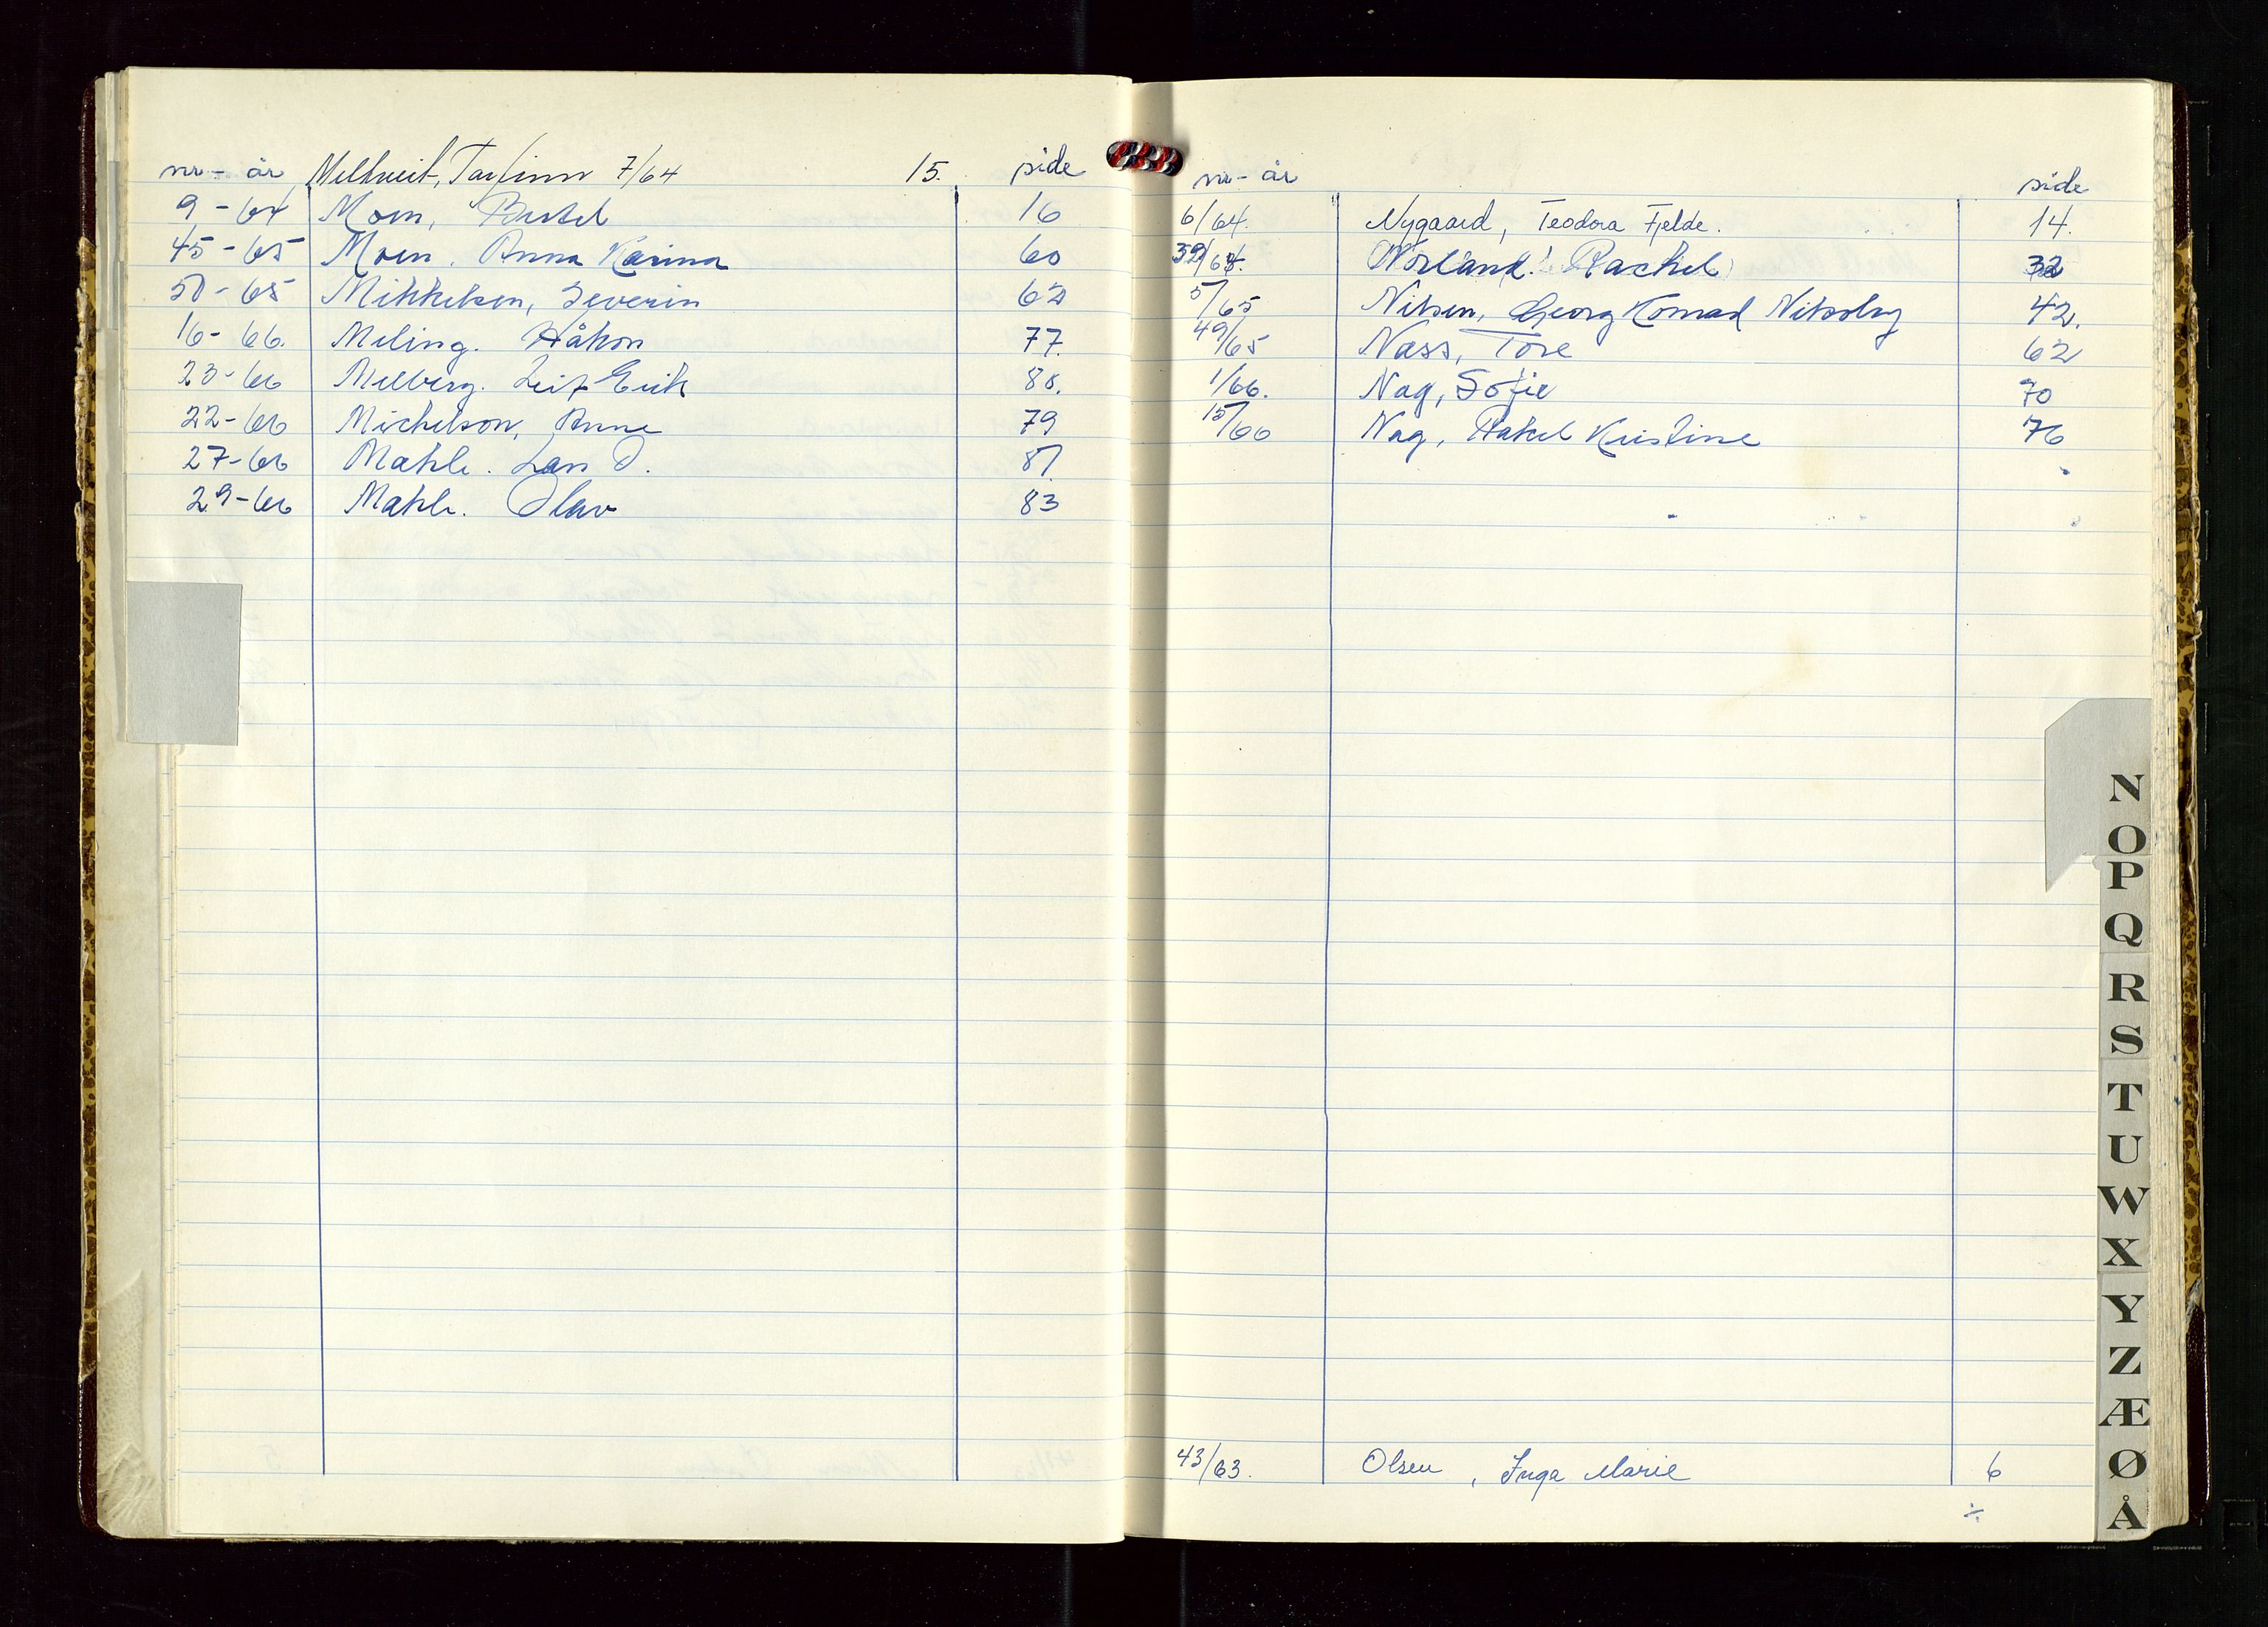 nr - år Melkueit, Torfinn 7/64 15. side
9 - 64 Moen, Bertel 16
45 - 65 Moen. Anna Karina 60
50 - 65 Mikkelsen, Severin 62
16 - 66. Meling. Håkon 77.
23 - 66 Melberg. Leif Erik 80.
22 - 66 Michelson, Anne 79
27 - 66 Mæhle. Lars O. 81
29 - 66 Mæhle. Olav 83
nr - år side
6/64. Nygaard, Teodora Fjelde. 14.
39/64. Norland. Rachel 32
5/65 Nilsen, Georg Konrad 42.
49/65 Næss, Tore 62
1/66. Nag, Sofie 70
15/66 Nag, Rakel Kristine 76
43/63. Olsen, Inga Marie 6
N
O
P
Q
R
S
T
U
W
X
Y
Z
Æ
Ø
Å